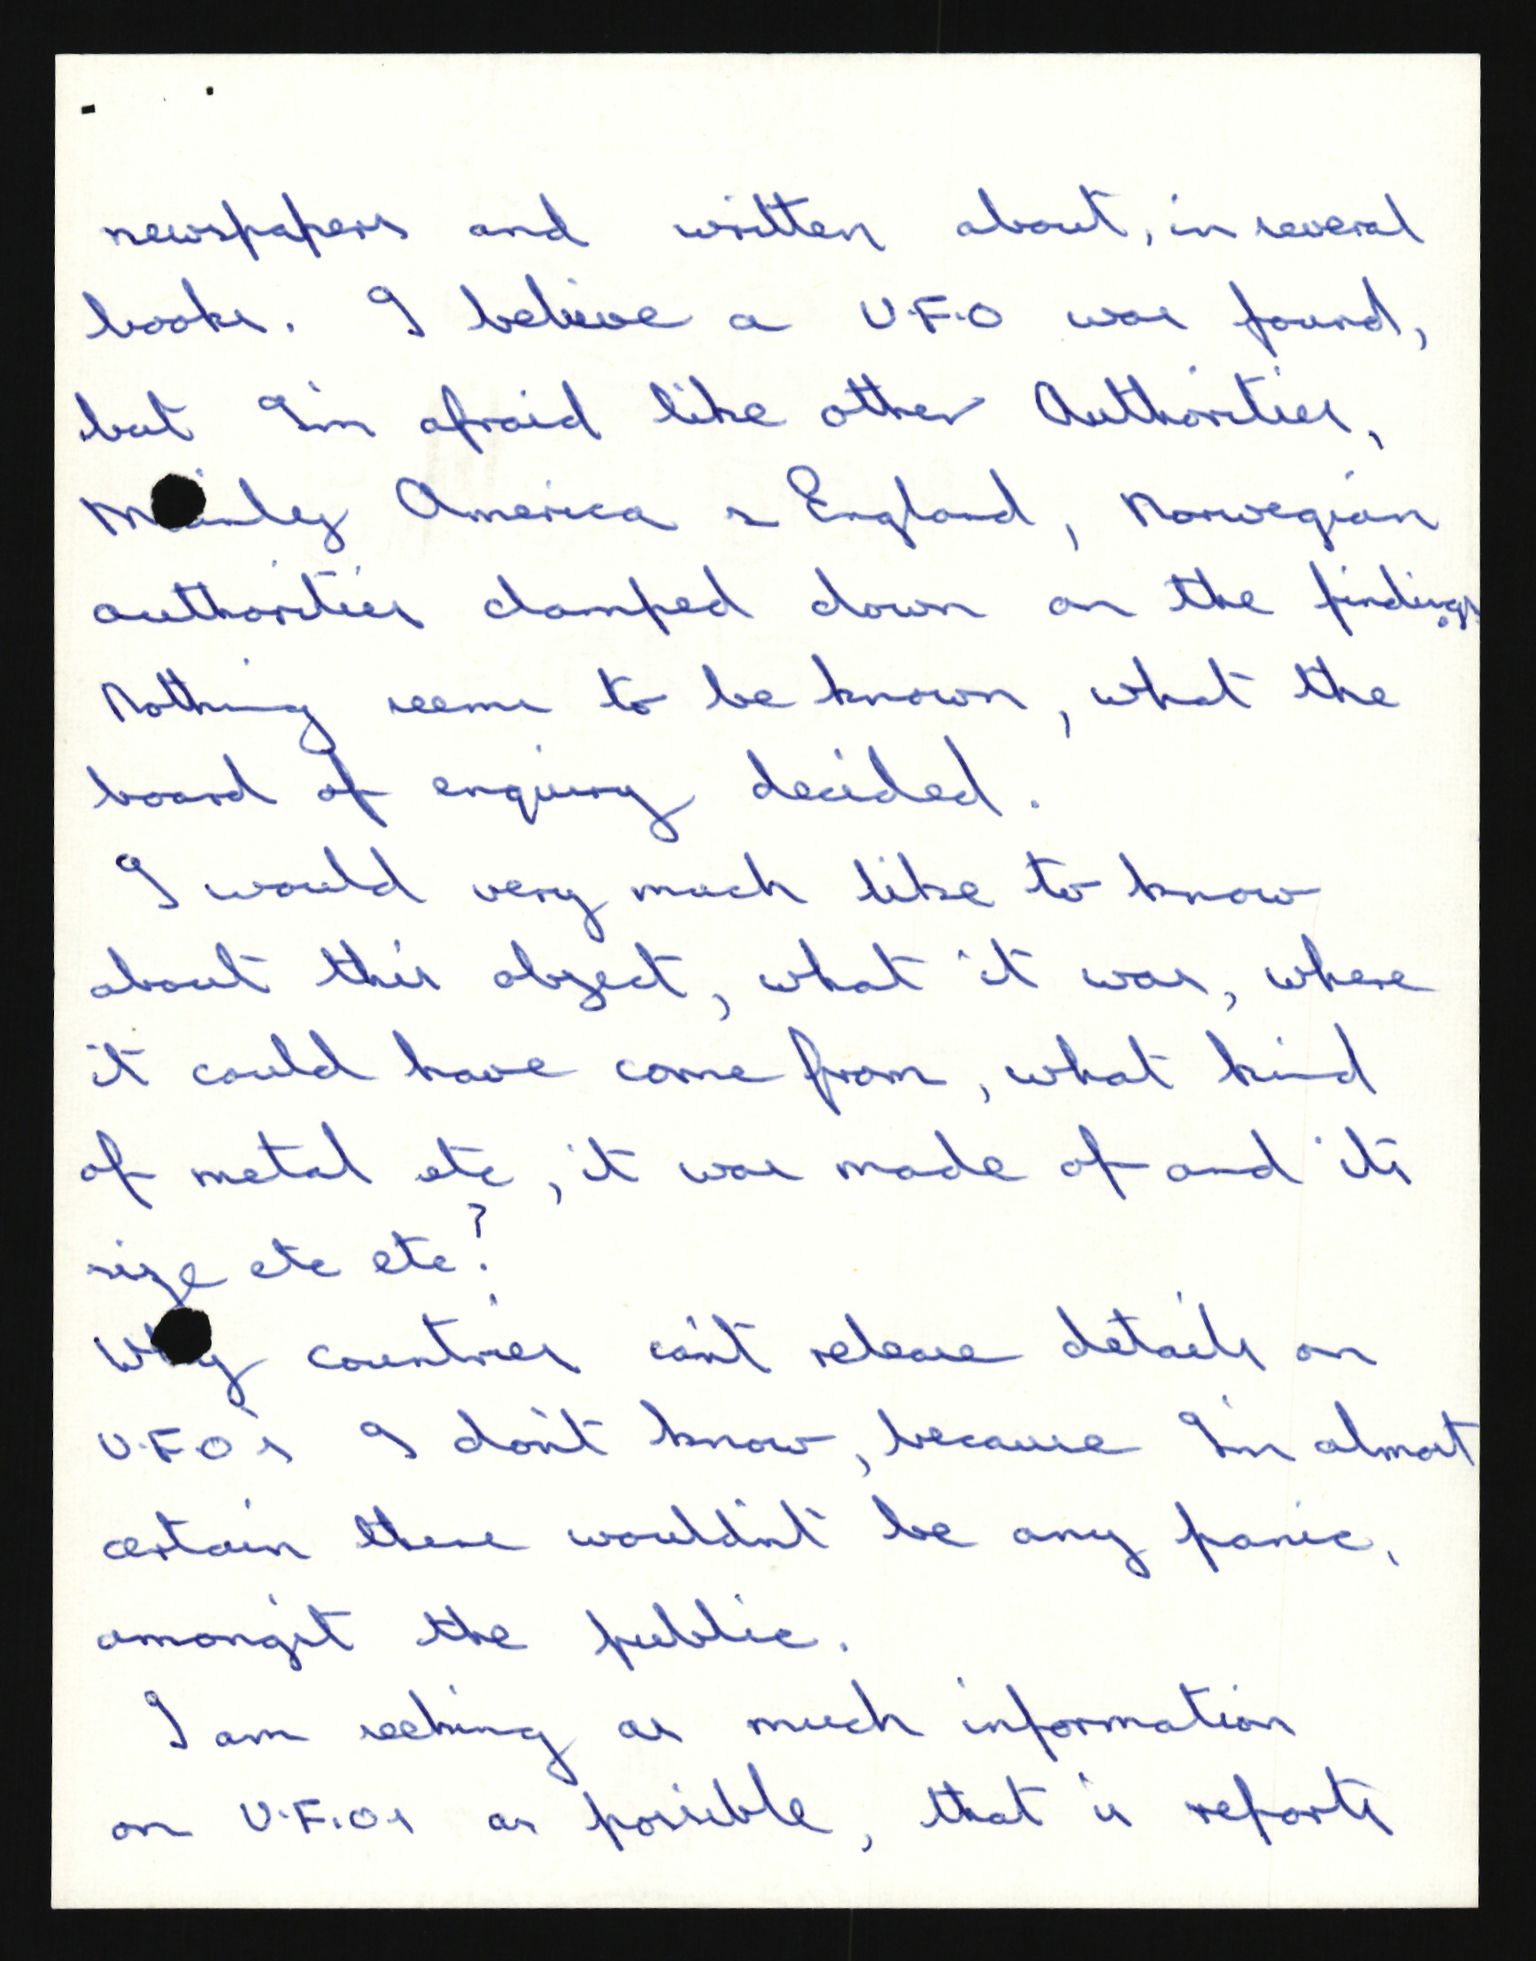 newspapers and written about, in several
books. I believe a U.F.O was found,
but I'm afraid like other Authorities,
Mainley America & England, Norwegian
authorities clamped down on the findings.
Nothing seems to be known, what the
board of enquiry decided.
I would very much like to know
about this object, what it was, where
it could have come from, what kind
of metal etc, it was made of and its
size etc etc?
Why countries can't release details on
U.F.O's I don't know, because I'm almost
certain there wouldn't be any panic,
amongst the public.
I am seeking as much information
on U.F.Os as possible, that is reports